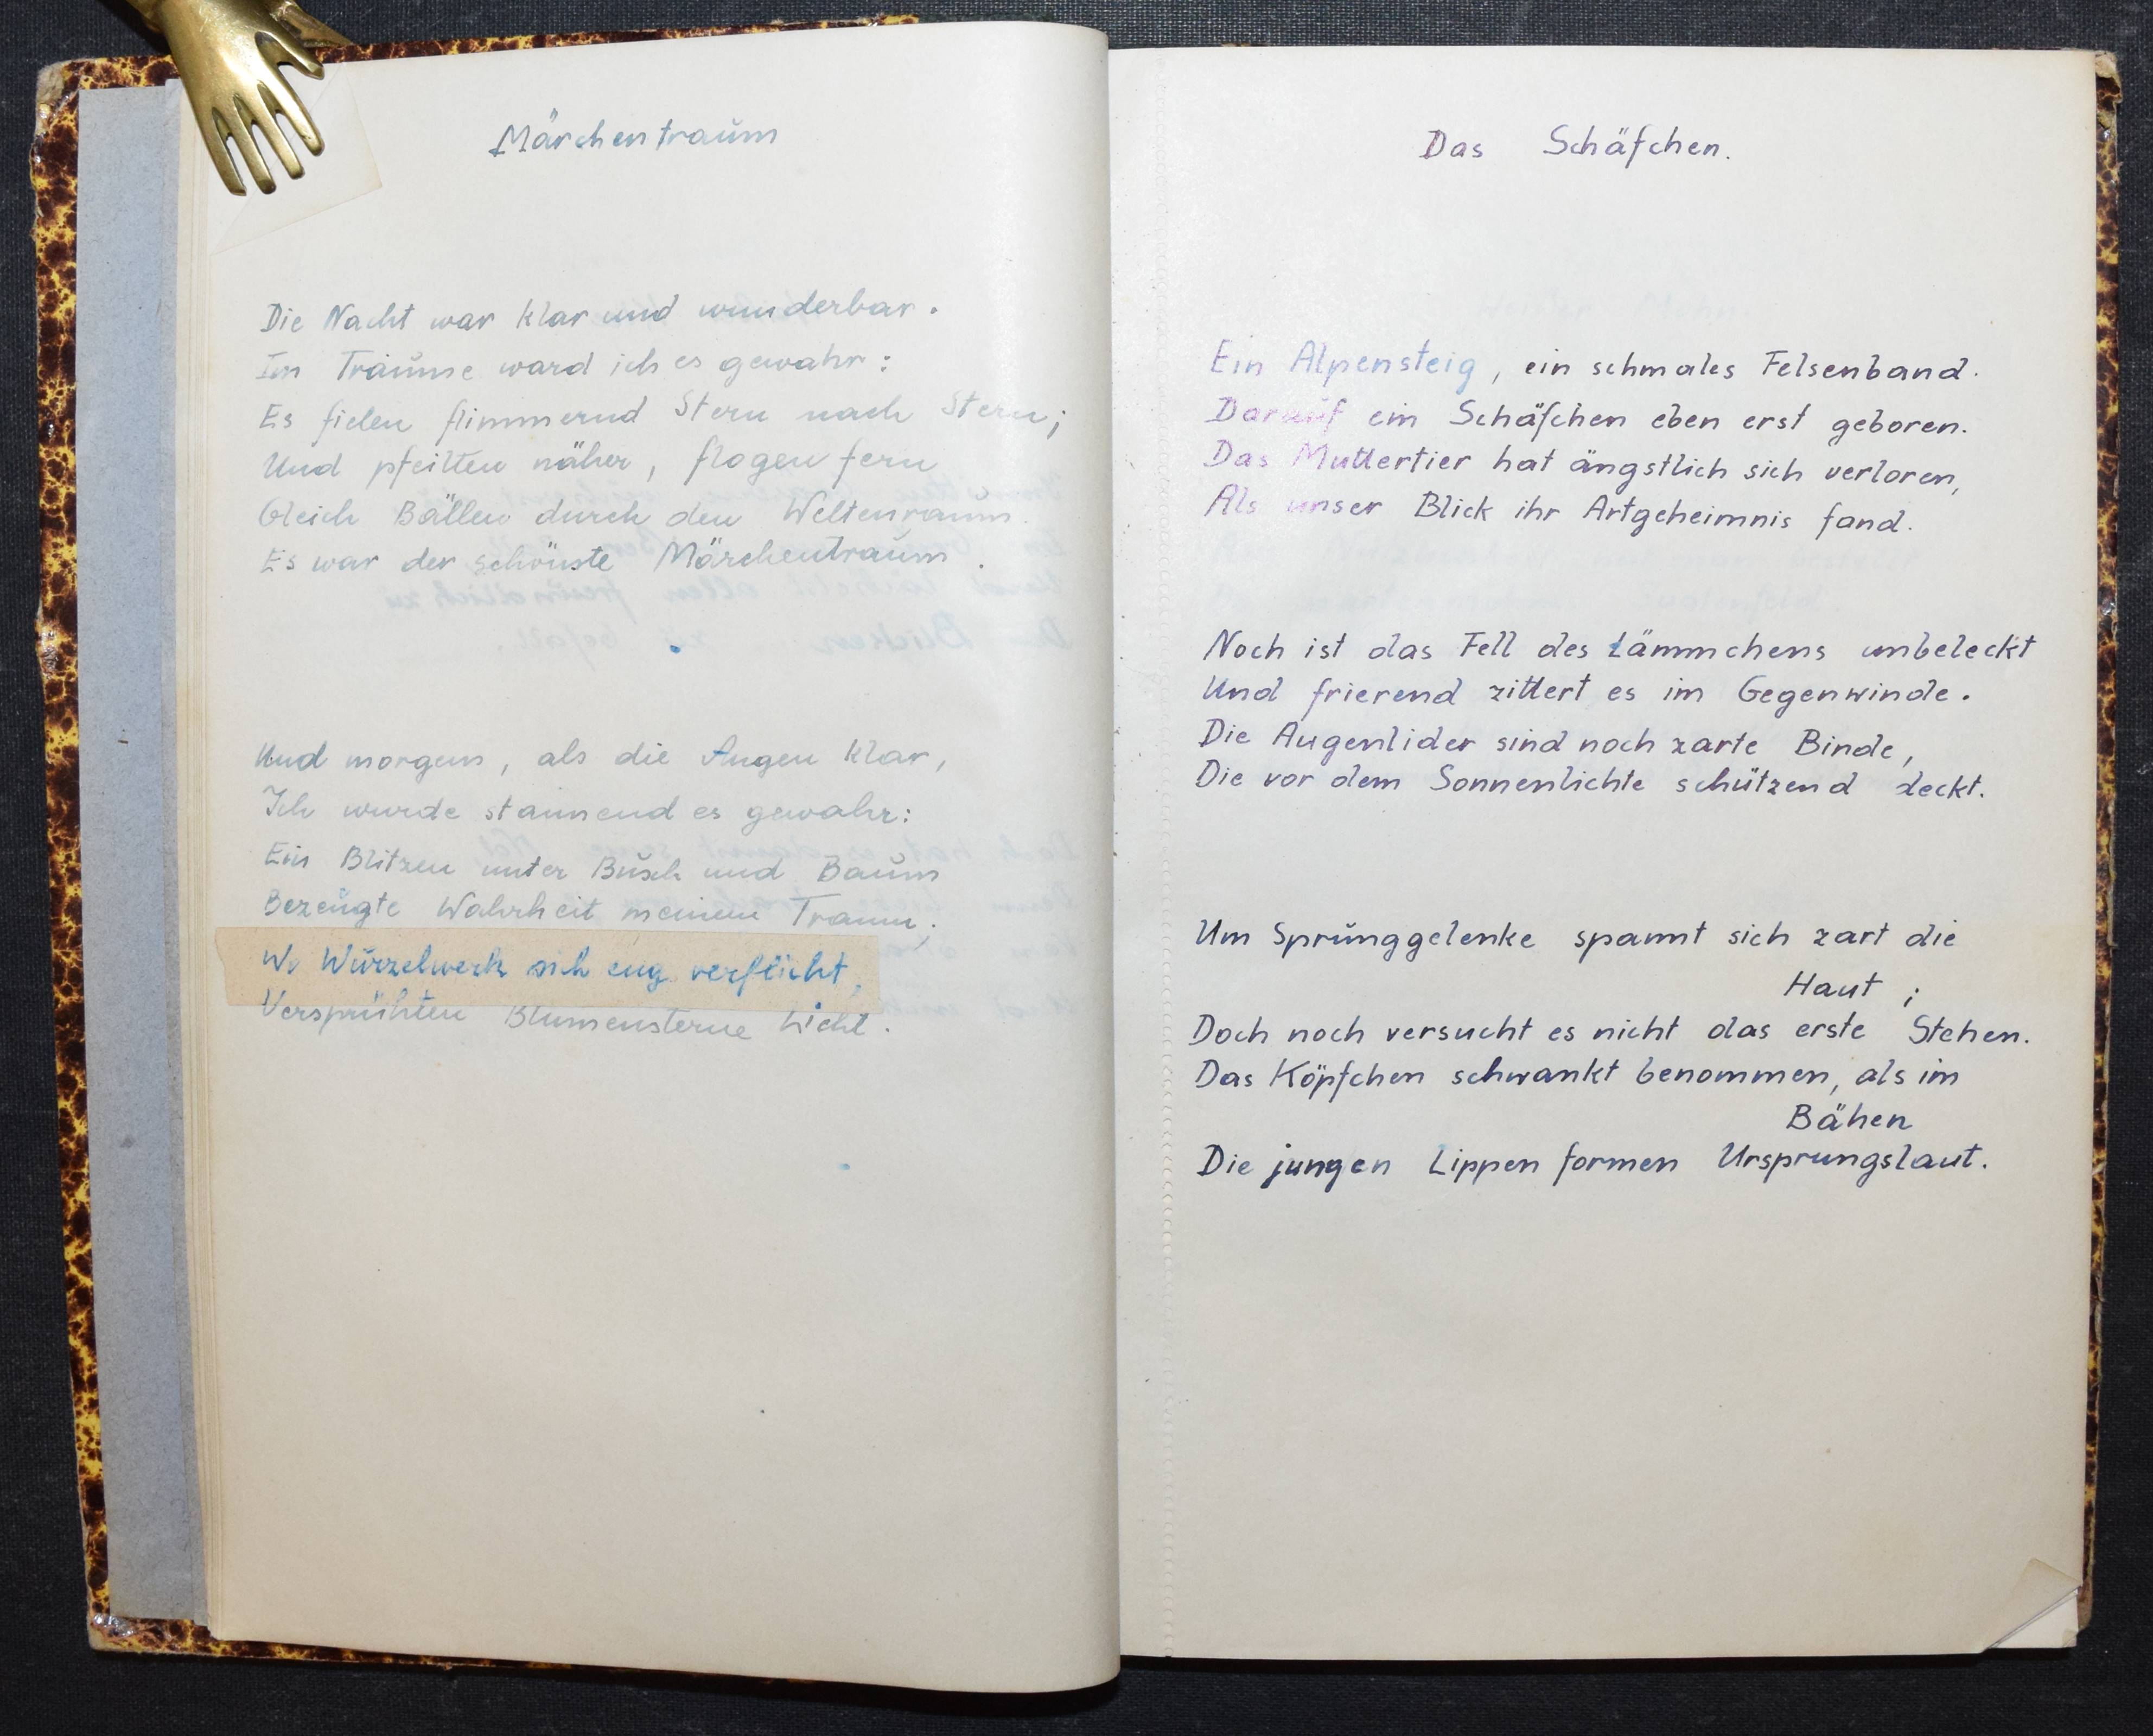 Märchentraum
Die Nacht war klar und wunderbar.
Im Traume ward ich es gewahr:
Es fielen flimmernd Stern nach Stern;
Und pfeilten näher, flogen fern
Gleich Bällen durch den Weltenraum.
Es war der schönste Märchentraum.
Und morgens, als die Augen klar,
Ich wurde staunend es gewahr:
Ein Blitzen unter Busch und Baum
Bezeugte Wahrheit meinem Traum;
Wo Wurzelwerk sich eng verflicht,
Versprühten Blumensterne Licht.
Das Schäfchen.
Ein Alpensteig, ein schmales Felsenband.
Darauf ein Schäfchen eben erst geboren.
Das Muttertier hat ängstlich sich verloren,
Als unser Blick ihr Artgeheimnis fand.
Noch ist das Fell des Lämmchens unbeleckt
Und frierend zittert es im Gegenwinde.
Die Augenlider sind noch zarte Binde,
Die vor dem Sonnenlichte schützend deckt.
Um Sprunggelenke spannt sich zart die
Haut;
Doch noch versucht es nicht das erste Stehen.
Das Köpfchen schwankt benommen, als im
Bähen
Die jungen Lippen formen Ursprungslaut.